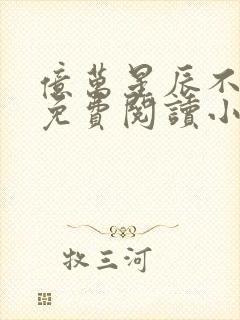 億萬星辰不
免費閱讀小
牧三河